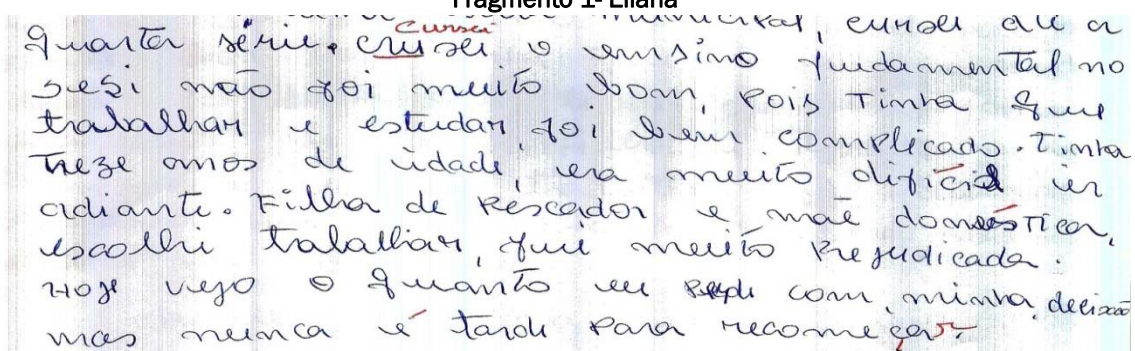 Fragmento 1- Eliana
municipal, cursei até a
quarta série. crusei cursei o ensino fudamental no
sesi não foi muito bom, pois tinha que
trabalhar e estudar, foi bem complicado. Tinha
treze anos de idade, era muito dificil ir
adiante. Filha de pescador e mãe doméstica,
escolhi tabalhar, fui muito prejudicada.
Hoje vejo o quanto eu perdi com minha decisão
mas nunca é tarde para recomeçar.